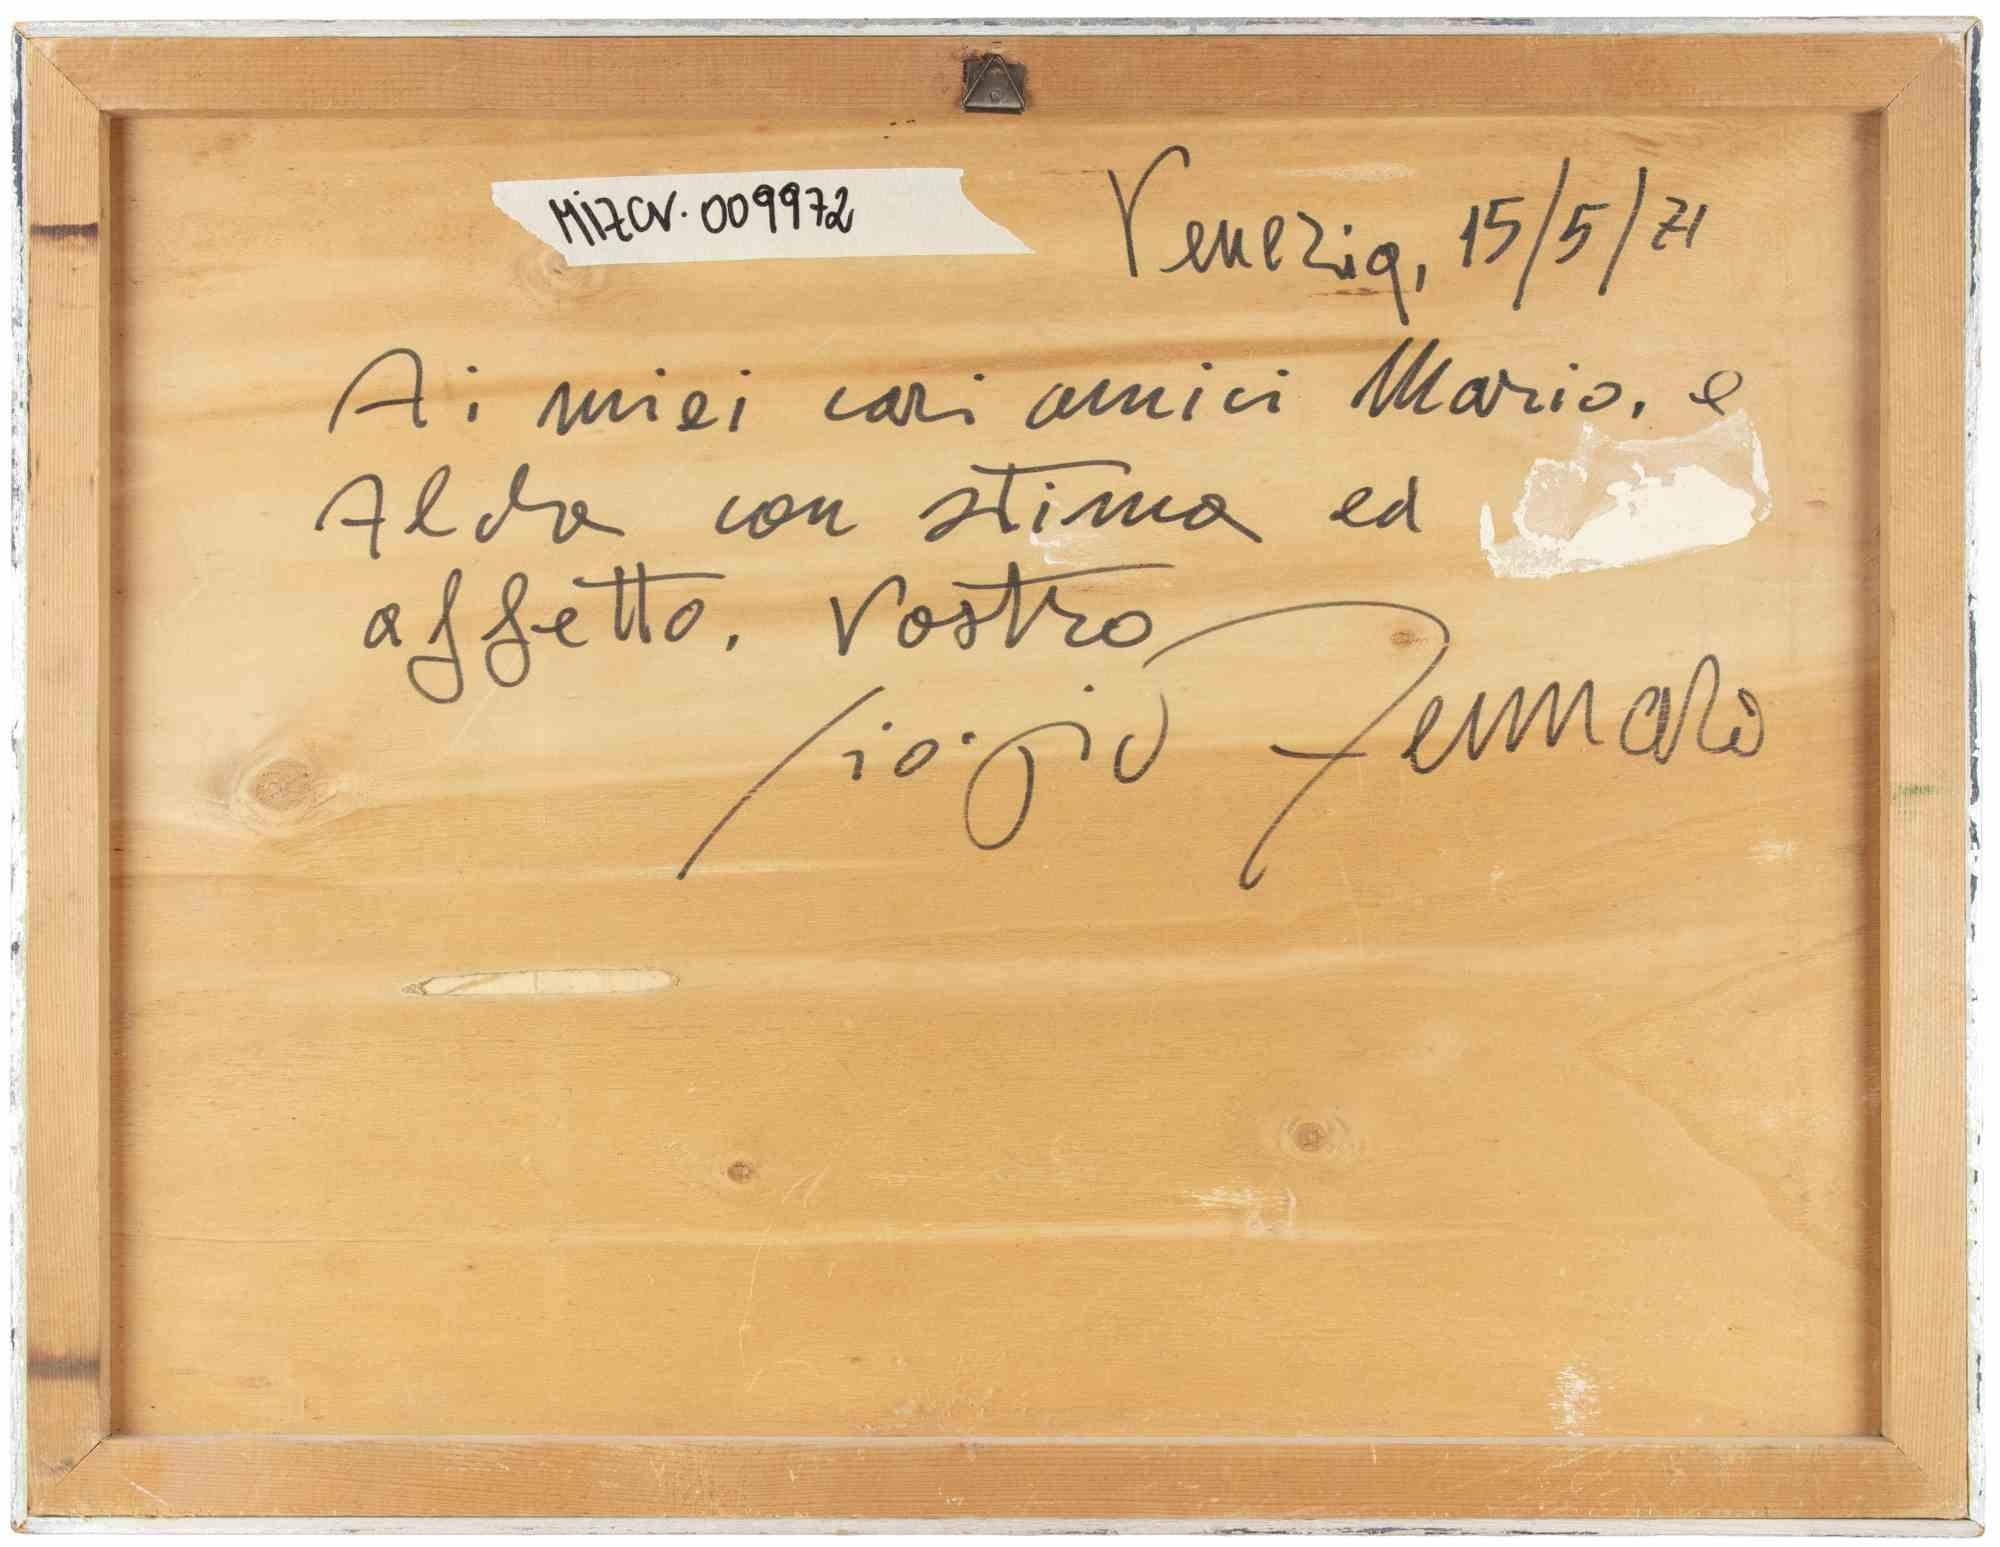 MIZCV.009972
Venezia, 15/5/71
Ai miei cari amici Mario, e
Alda con stima ed
affetto, Vostro
Giorgio